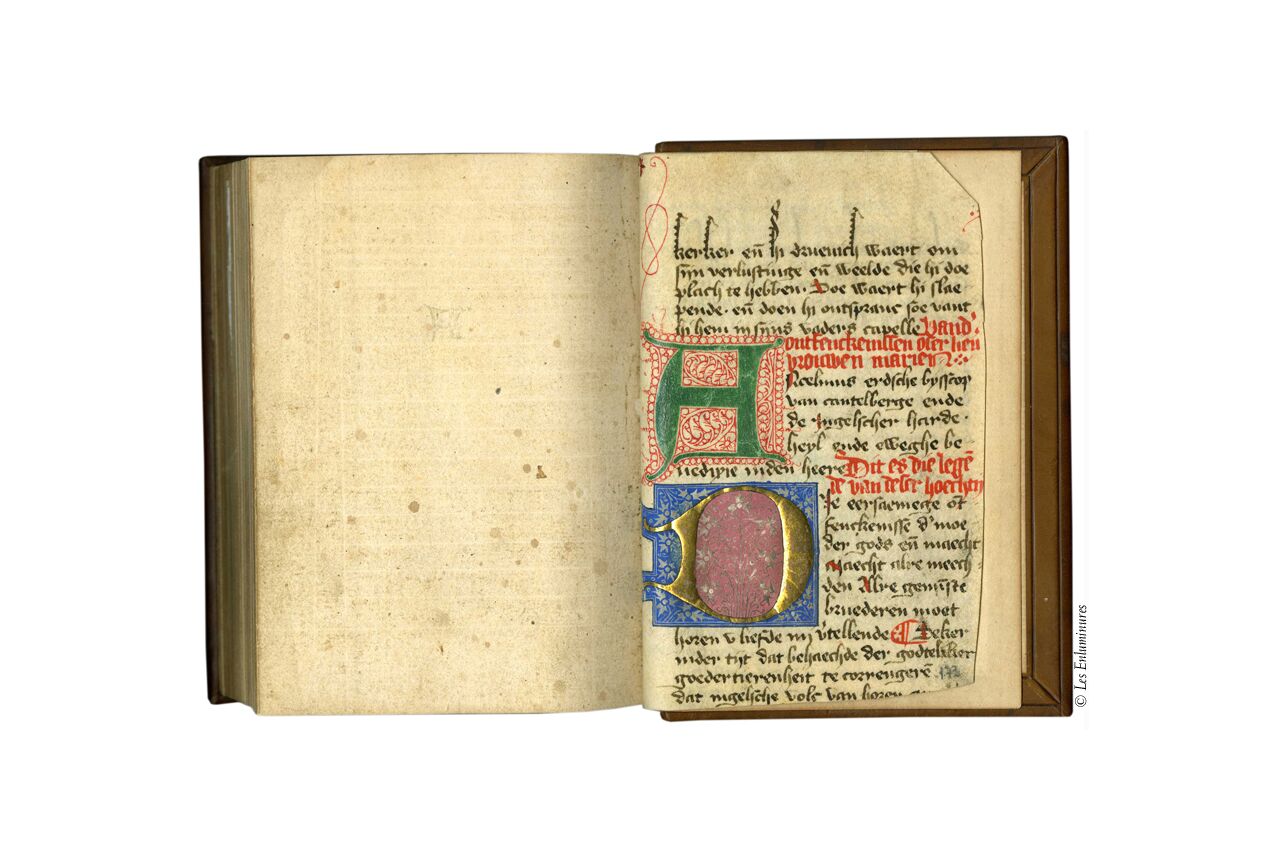 kerker en̄ hi druevich waert om
sijn verlustinge en̄ weelde die hi doe
plach te hebben. Doe waert hi slae
pende. en̄ doen hi ontspranc soe vant
hi hem in sijns vaders capelle Vand'
ontfenckenissen onser lieu
vrouwen marien
Ancelmus erdsche bysscop
van cantelberge ende
de ingelscher harde
heyl ende eweghe be
nedixie inden heere Dit es die legē
de van deser hoechtijt
Die eersaemege ōt
fenckenisse d' moe
der gods en̄ maecht
Maecht alre meech
den Alre gemīste
bruederen moet
horen v liefde mi v'tellende Seker
inder tijt dat behaechde der godteliker
goedertierenheit te correngerē
dat ingelsche volc van horen
172
© Les Enluminures